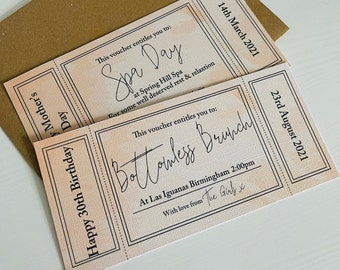 Mother's
Day
This voucher entitles you to:
Spa Day
at Spring Hill Spa
For some well deserved rest & relaxtion
14th March 2021
Happy 30th Birthday
This voucher entitles you to:
Bottomless Brunch
At Las Iguanas Birmingham 2:00pm
With love from The Girls x
23rd August 2021